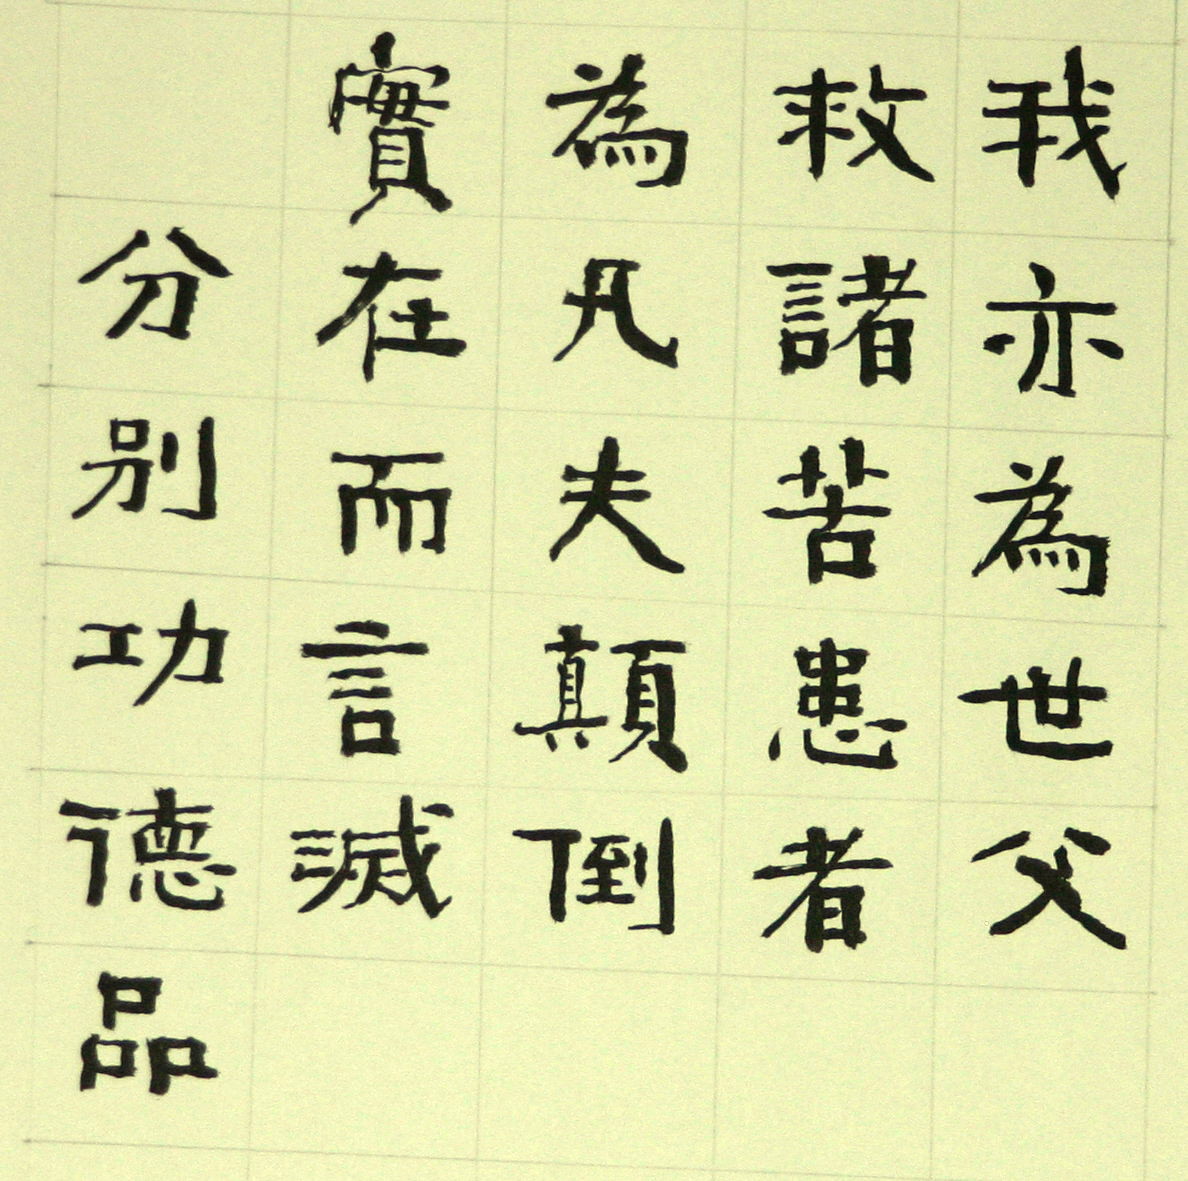 我亦為世父
救諸苦患者
為凡夫顛倒
實在而言滅
分别功德品